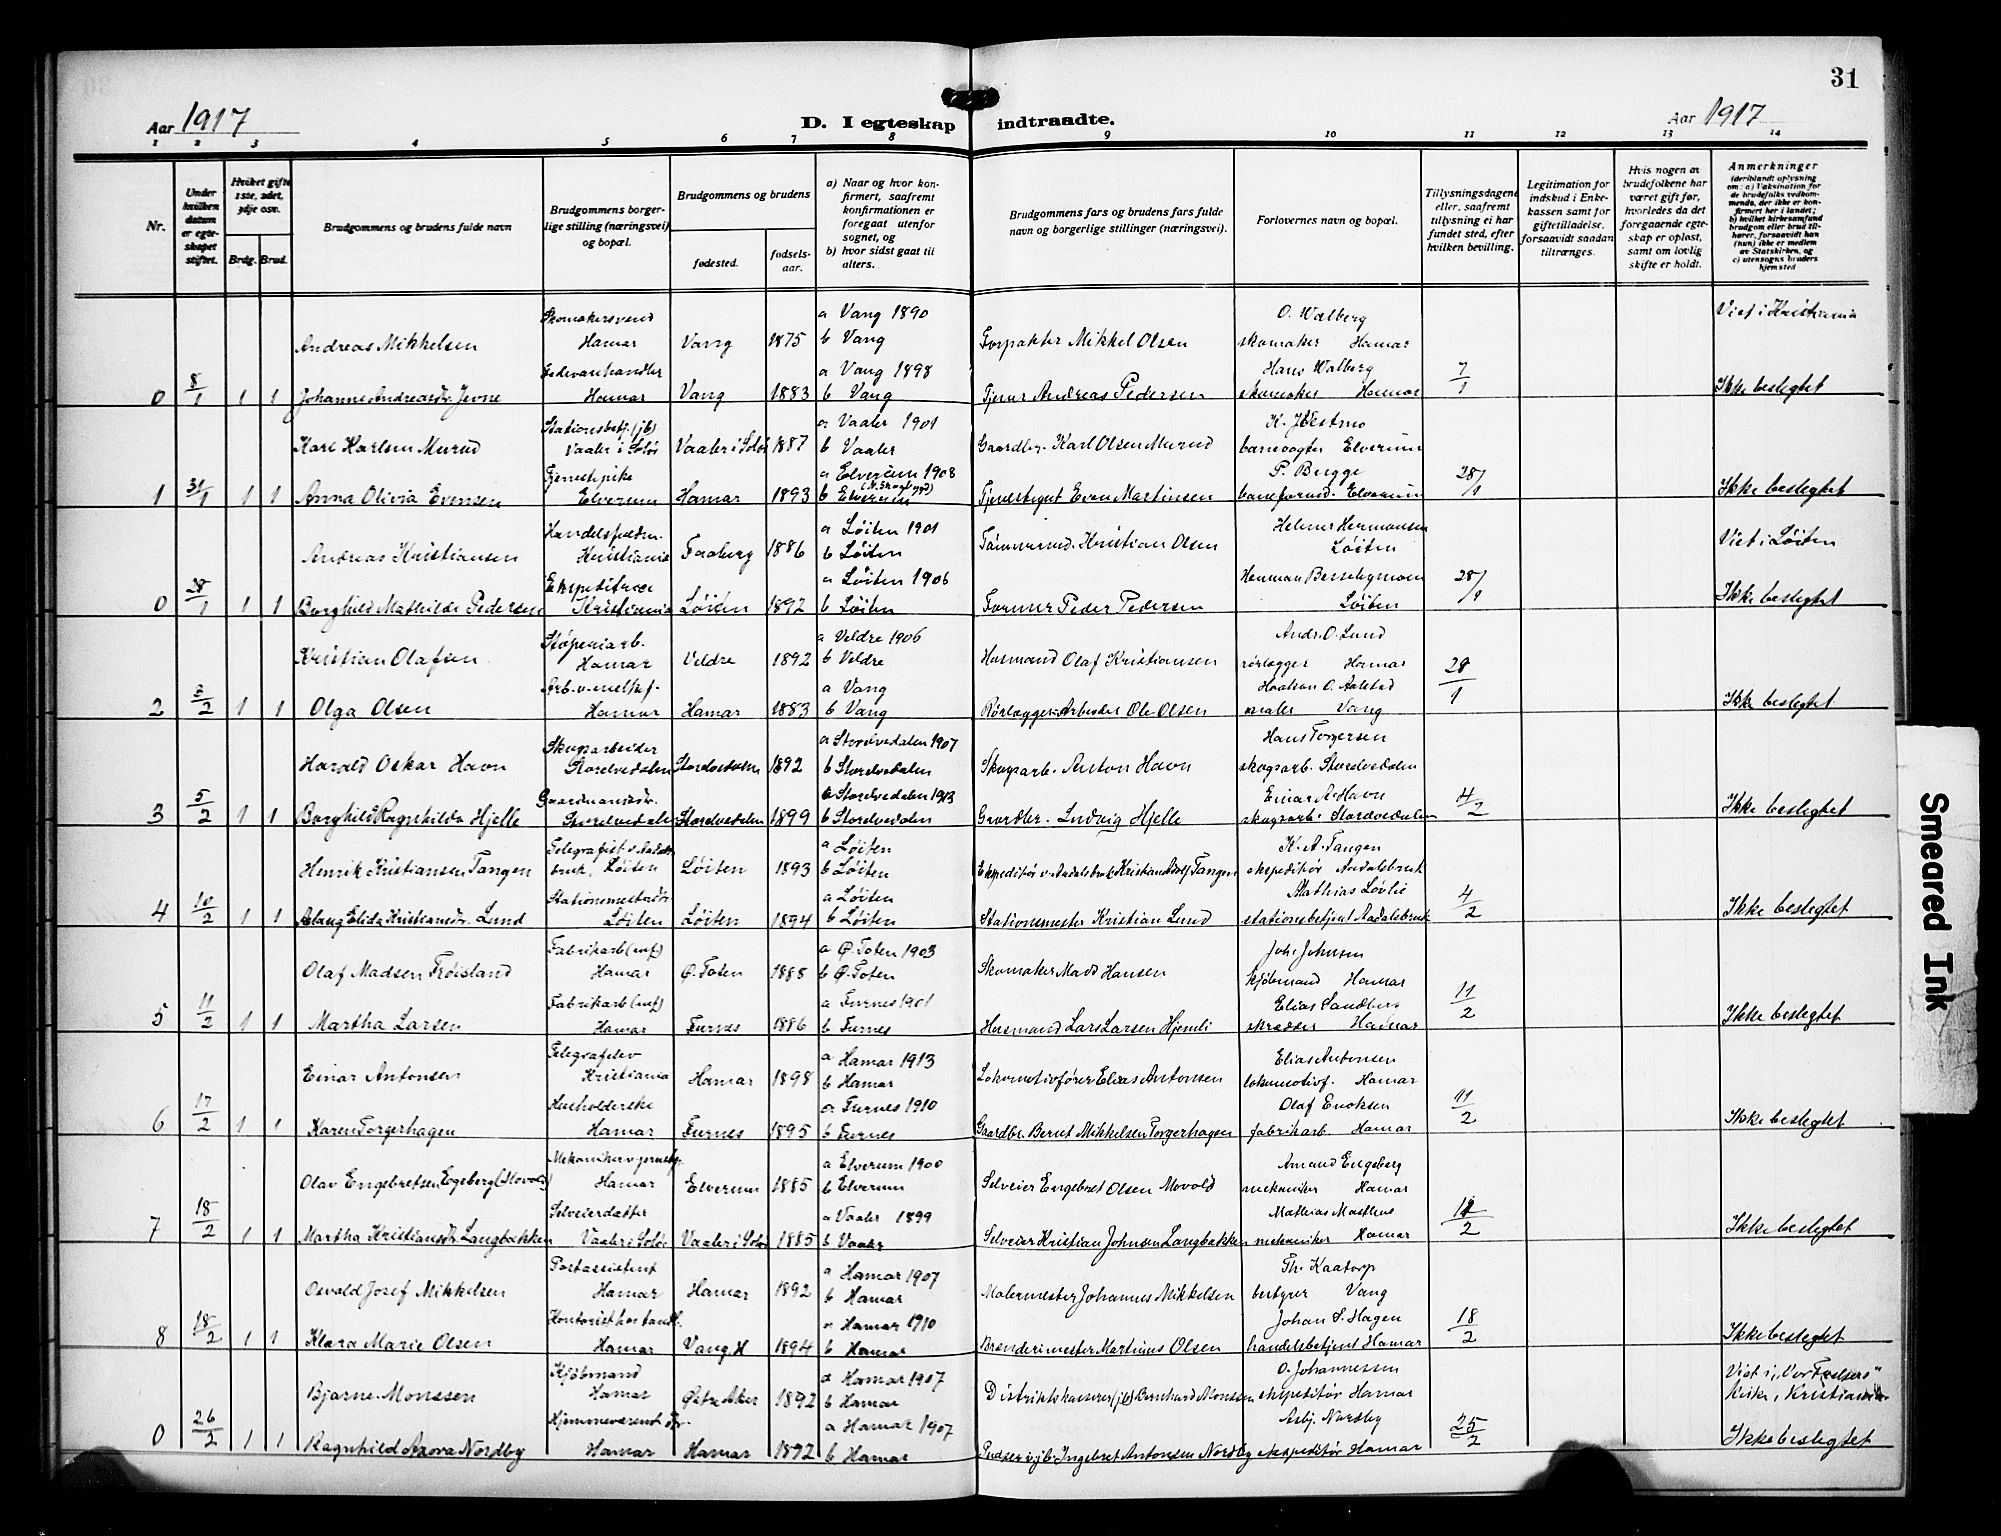 31
Aar 1917 D. I egteskap indtraadte. Aar 1917
1 2 3 4 5 6 7 8 9 10 11 12 13 14
Nr.
Under hvilken datum er egteskapet stiftet.
Hvilket gifte 1ste, 2det, 3dje osv.
Brdg. Brud.
Brudgommens og brudens fulde navn
Brudgommens borgerlige stilling (næringsvei) og bopæl.
Brudgommens og brudens
fødested.
fødselsaar.
a) Naar og hvor konfirmert, saafremt konfirmationen er foregaat utenfor sognet, og
b) hvor sidst gaat til alters.
Brudgommens fars og brudens fars fulde navn og borgerlige stillinger (næringsvei).
Forlovernes navn og bopæl.
Tillysningsdagene eller, saafremt tillysning ei har fundet sted, efter hvilken bevilling.
Legitimation for indskud i Enkekassen samt for giftetilladelse, forsaavidt saadan tiltrænges.
Hvis nogen av brudefolkene har været gift før, hvorledes da det foregaaende egteskap er opløst, samt om lovlig skifte er holdt.
Anmerkninger (deriblandt oplysning om: a) Vaksination for de brudefolks vedkommende, der ikke er konfirmert her i landet; b) hvilket kirkesamfund brudgom eller brud tilhører, forsaavidt han (hun) ikke er medlem av Statskirken, og c) utensogns bruders hjemsted
Skomakersvend a Vang 1890 O. Walberg Viet i Kristiania
Andreas Mikkelsen Hamar Vang 1875 b Vang Forpakter Mikkel Olsen skomaker Hamar
Fedevarehandler a Vang 1898 Hans Walberg
0 8/1 1 1 Johanne Andreasdr. Jevne Hamar Vang 1883 b Vang Tjener Andreas Pedersen skomaker Hamar 7/1 Ikke beslegtet
Stationsbetj. (jb) a Vaaler 1901
Karl Karlsen Murud Vaaler i Solør Vaaler i Solør 1887 b Vaaler Gaardbr. Karl Olsen Murud banevogter Elverum
Tjenestepike a Elverum 1908 P. Bugge
1 31/1 1 1 Anna Olivia Evensen Elverum Hamar 1893 b Elverum Tjenestegut Even Martinsen baneformd. Elverum 28/1 Ikke beslegtet
a Løiten 1901 Helmer Hermansen
Andreas Kristiansen Kristiania Faaberg 1886 b Løiten Tømmermd. Kristian Olsen Løiten Viet i Løiten
Ekspeditrice a Løiten 1906 Herman
0 28/1 1 1 Borghild Mathilde Pedersen Kristiania Løiten 1892 b Løiten Former Peder Pedersen Løiten 28/1 Ikke beslegtet
Støperiarb. a Veldre 1906 Andr. O. Lund
Kristian Olafsen Hamar Veldre 1892 b Veldre Husmand Olaf Kristiansen rørlægger Hamar
a Vang Haakon O. Aalstad
2 3/2 1 1 Olga Olsen Hamar Hamar 1883 b Vang Rørlægger-Arbeider Ole Olsen maler Vang /1 Ikke beslegtet
Skogsarbeider a Storelvedalen 1907 Hans Torgersen
Harald Oskar Havn Storelvedalen Storelvedalen 1892 b Storelvedalen Skogsarb. Anton Havn skogsarb. Storelvedalen
Gaardmansdr. a Storelvedalen 1913 Einar A. Havn
3 5/2 1 1 Borghild Ragnhilda Hjelle Storelvedalen Storelvedalen 1899 b Storelvedalen Gaardbr. Ludvig Hjelle skogsarb. Storelvedalen 4/2 Ikke beslegtet
Telegrafist v. Aadalsbruk, Løiten a Løiten K. A. Tangen
Henrik Kristiansen Tangen Løiten 1893 b Løiten Ekspeditør v. Aadalsbruk Kristian Adolf Tangen ekspeditør Aadalsbruk
Stationsmesterdr. a Løiten Mathias Løvlie
4 10/2 1 1 Aslaug Elida Kristiansdr. Lund Løiten Løiten 1894 b Løiten Stationsmester Kristian Lund stationsbetjent Aadalsbruk 4/2 Ikke beslegtet
Fabrikarb (mf) a Ø. Toten 1903 Joh. Johnsen
Olaf Madsen Frøisland Hamar Ø. Toten 1888 b Ø. Toten Skomaker Mads Hansen kjøbmand Hamar
Fabrikarb (mf) a Furnes 1901 Elias Sandberg
5 11/2 1 1 Martha Larsen Hamar Furnes 1886 b Furnes Husmand Lars Larsen Hjemli skrædder Hamar 11/2 Ikke beslegtet
Telegrafelev a Hamar 1913 Elias Antonsen
Einar Antonsen Kristiania Hamar 1898 b Hamar Lokomotivfører Elias Antonsen lokomotivf. Hamar
Husholderske a Furnes 1910 Olaf Enoksen
6 17/2 1 1 Karen Torgerhagen Hamar Furnes 1895 b Furnes Gaardbr. Bernt Mikkelsen Torgerhagen fabrikarb. Hamar 11/2 Ikke beslegtet
a Elverum 1900 Amand Engeberg
Olav Engebretsen Engeberg (Movold) Hamar Elverum 1885 b Elverum Selveier Engebret Olsen Movold mekaniker Hamar
Selveierdatter a Vaaler 1899 Mathias
7 18/2 1 1 Martha Kristiansdr. Langbakken Vaaler i Solør Vaaler i Solør 1885 b Vaaler Selveier Kristian Johnsen Langbakken mekaniker Hamar /2 Ikke beslegtet
Postassistent a Hamar 1907 Th. Kaatorp
Osvald Josef Mikkelsen Hamar Hamar 1892 b Hamar Malermester Johannes Mikkelsen bestyrer Vang
a Hamar 1910 Johan S. Hagen
8 18/2 1 1 Klara Marie Olsen Hamar Vang H 1894 b Hamar Brænderimester Martinus Olsen handelsbetjent Hamar 18/2 Ikke beslegtet
Kjøbmand a Hamar 1907 O. Johannessen Viet i „Vor Frelsers"
Bjarne Monssen Hamar Østre Aker 1892 b Hamar Distriktskasserer (jb) Bernhard Monssen ekspeditør Hamar Kirke, Kristiania
Hjemmeværend. dtr. a Hamar 1907 Asbj. Nordby
0 26/2 1 1 Ragnhild Azora Nordby Hamar Hamar 1892 b Hamar Pudser v. jb. Ingebret Antonsen Nordby ekspeditør Hamar 25/2 Ikke beslegtet
Smeared Ink